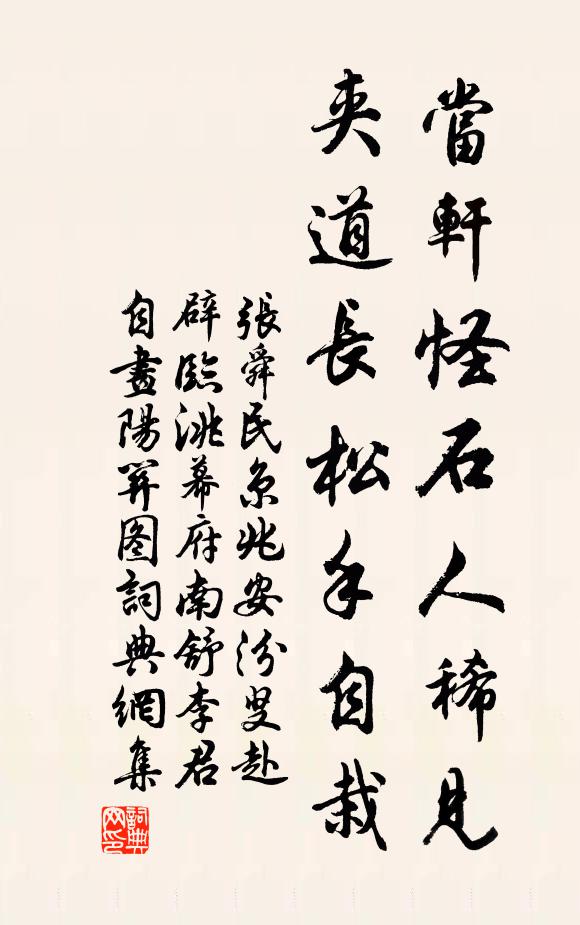 當軒怪石人稀見
夾道長松手自栽
張舜民京兆安汾叟赴
辟臨洮幕府南舒李君
自畫陽關圖詞典網集
詞典网印